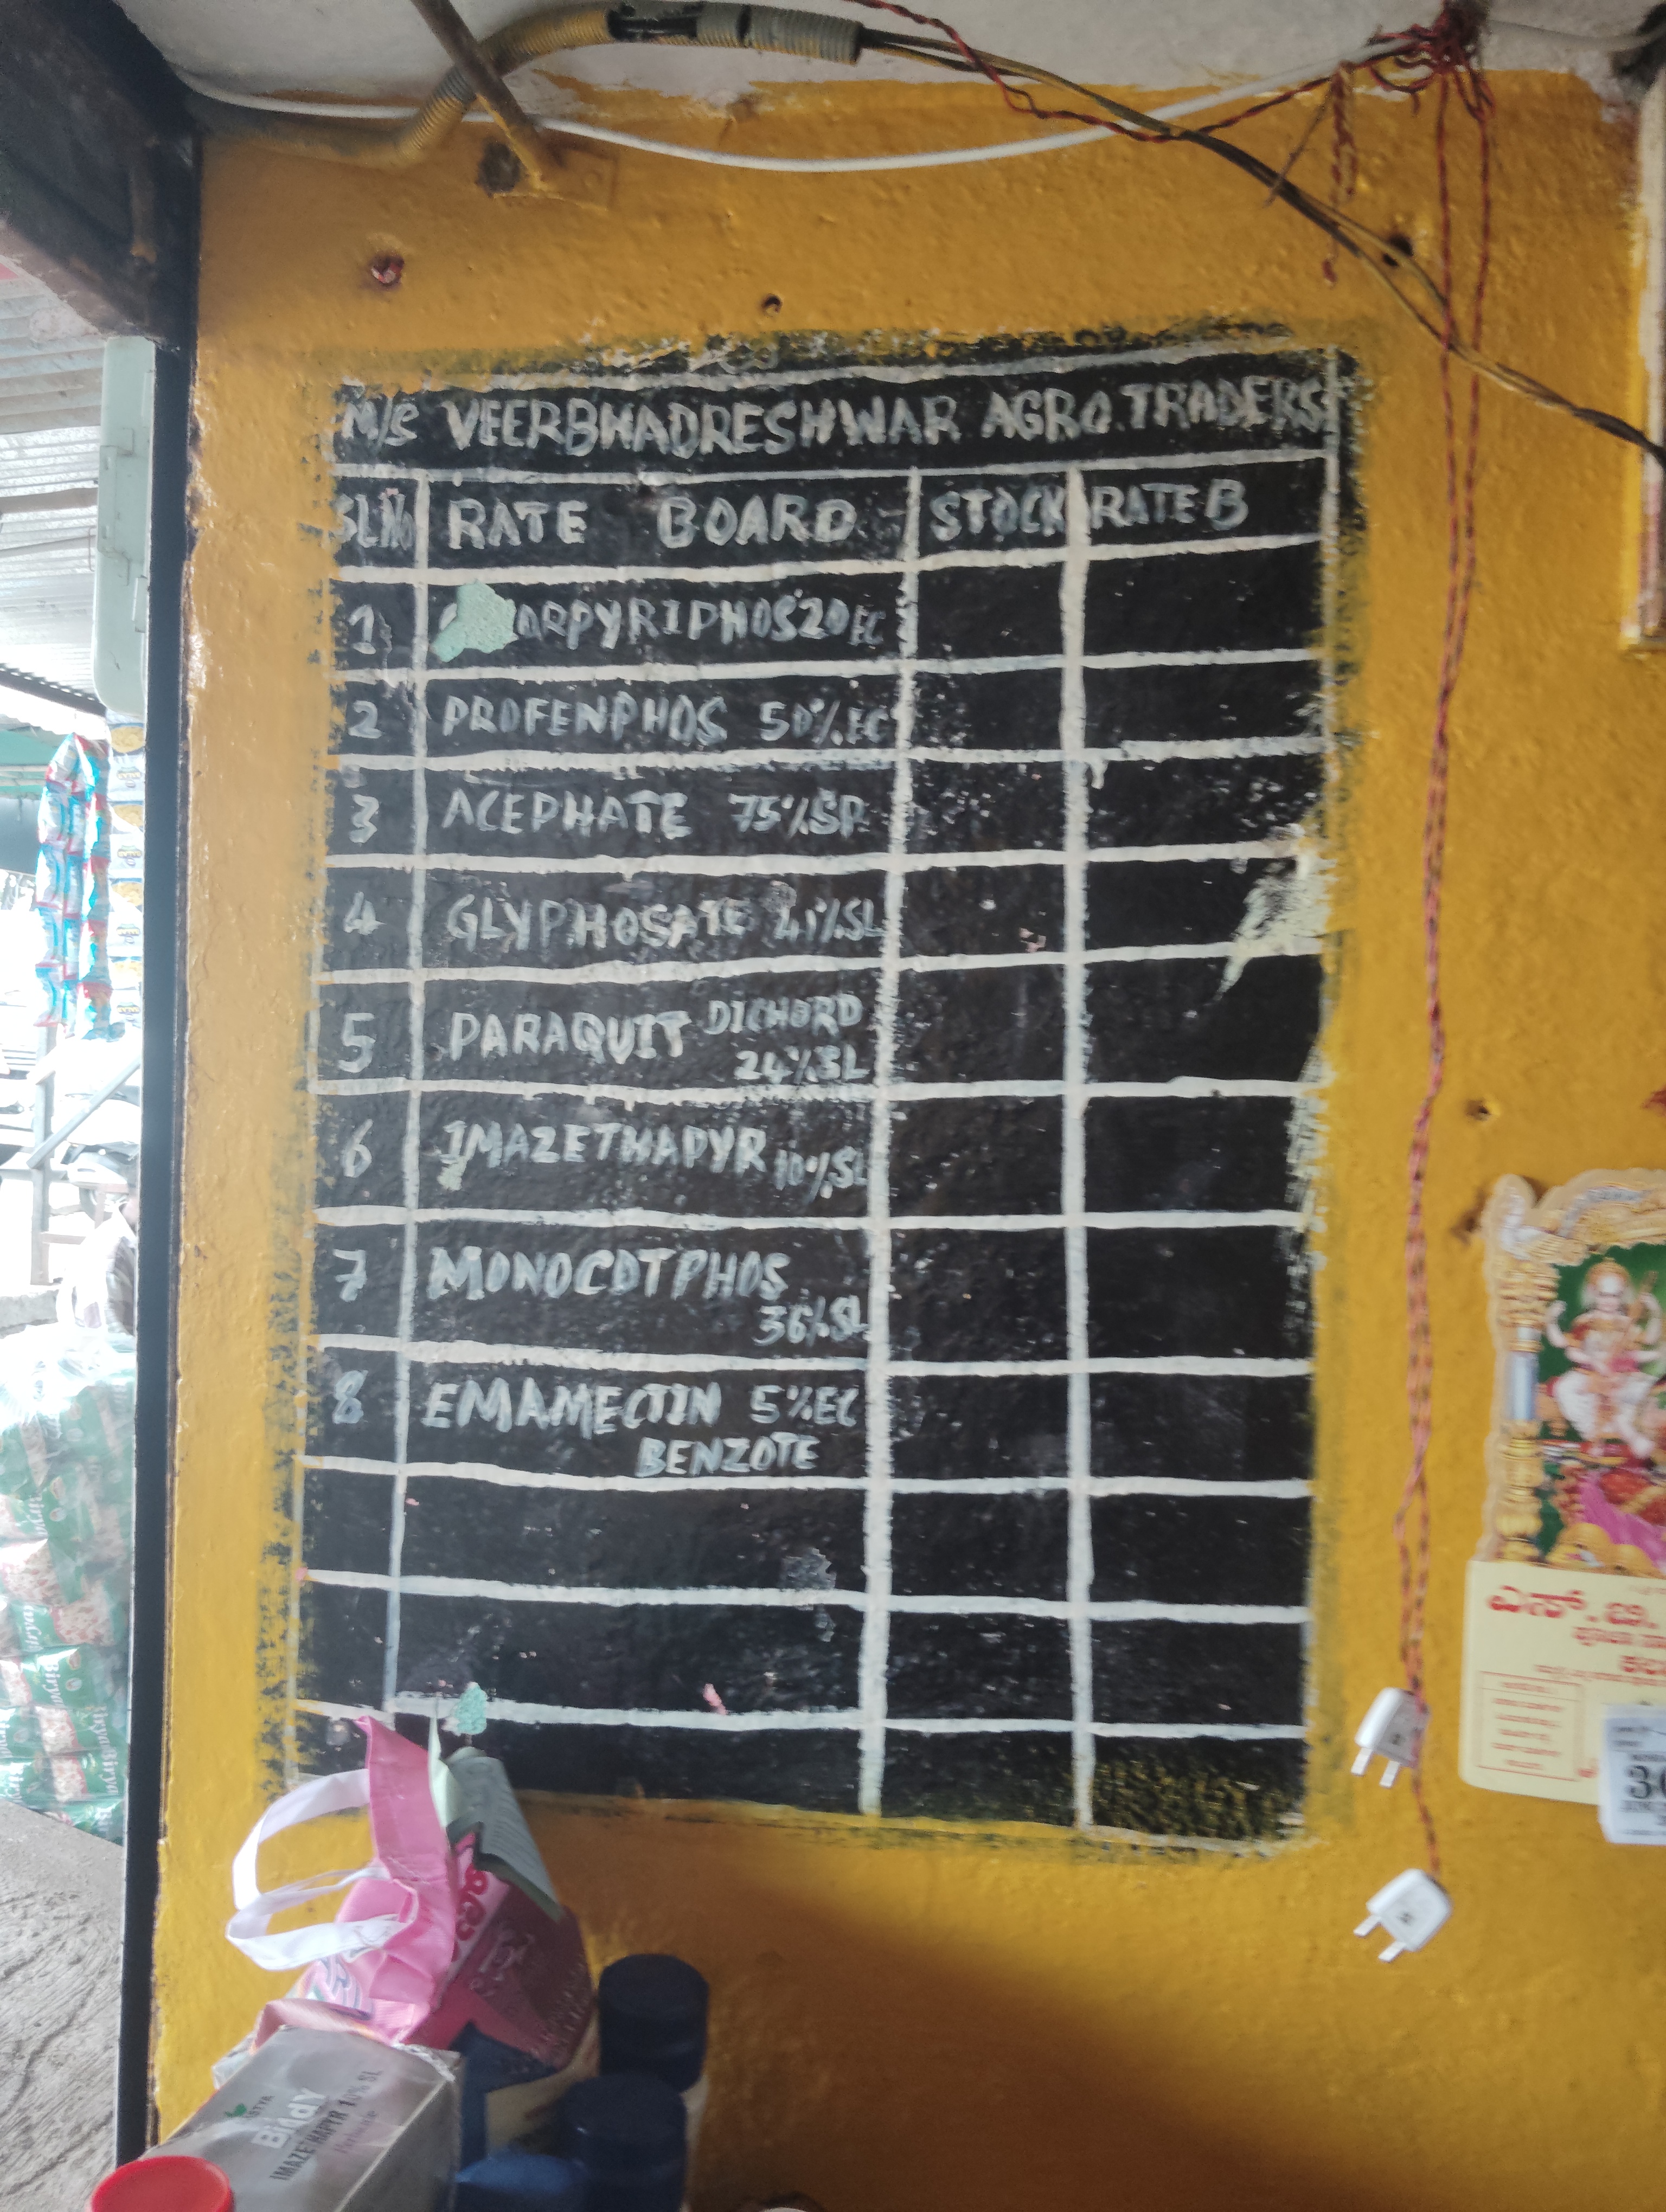 M/S VEERBHADRESHWAR AGRO. TRADERS
SL.No RATE BOARD STOCK RATE B
1 ORPYRIPHOS 20 EC
2 PROFENPHOS 50% EC
3 ACEPHATE 75% SP.
4 GLYPHOSATE 41% SL
5 PARAQUIT DICHORD
24% SL
6 IMAZETHAPYR 10% SL
7 MONOCOTPHOS
36% SL
8 EMAMECTIN 5% EC
BENZOTE
ಎಸ್. ಬಿ.
IMAZETHAPYR 10% SL